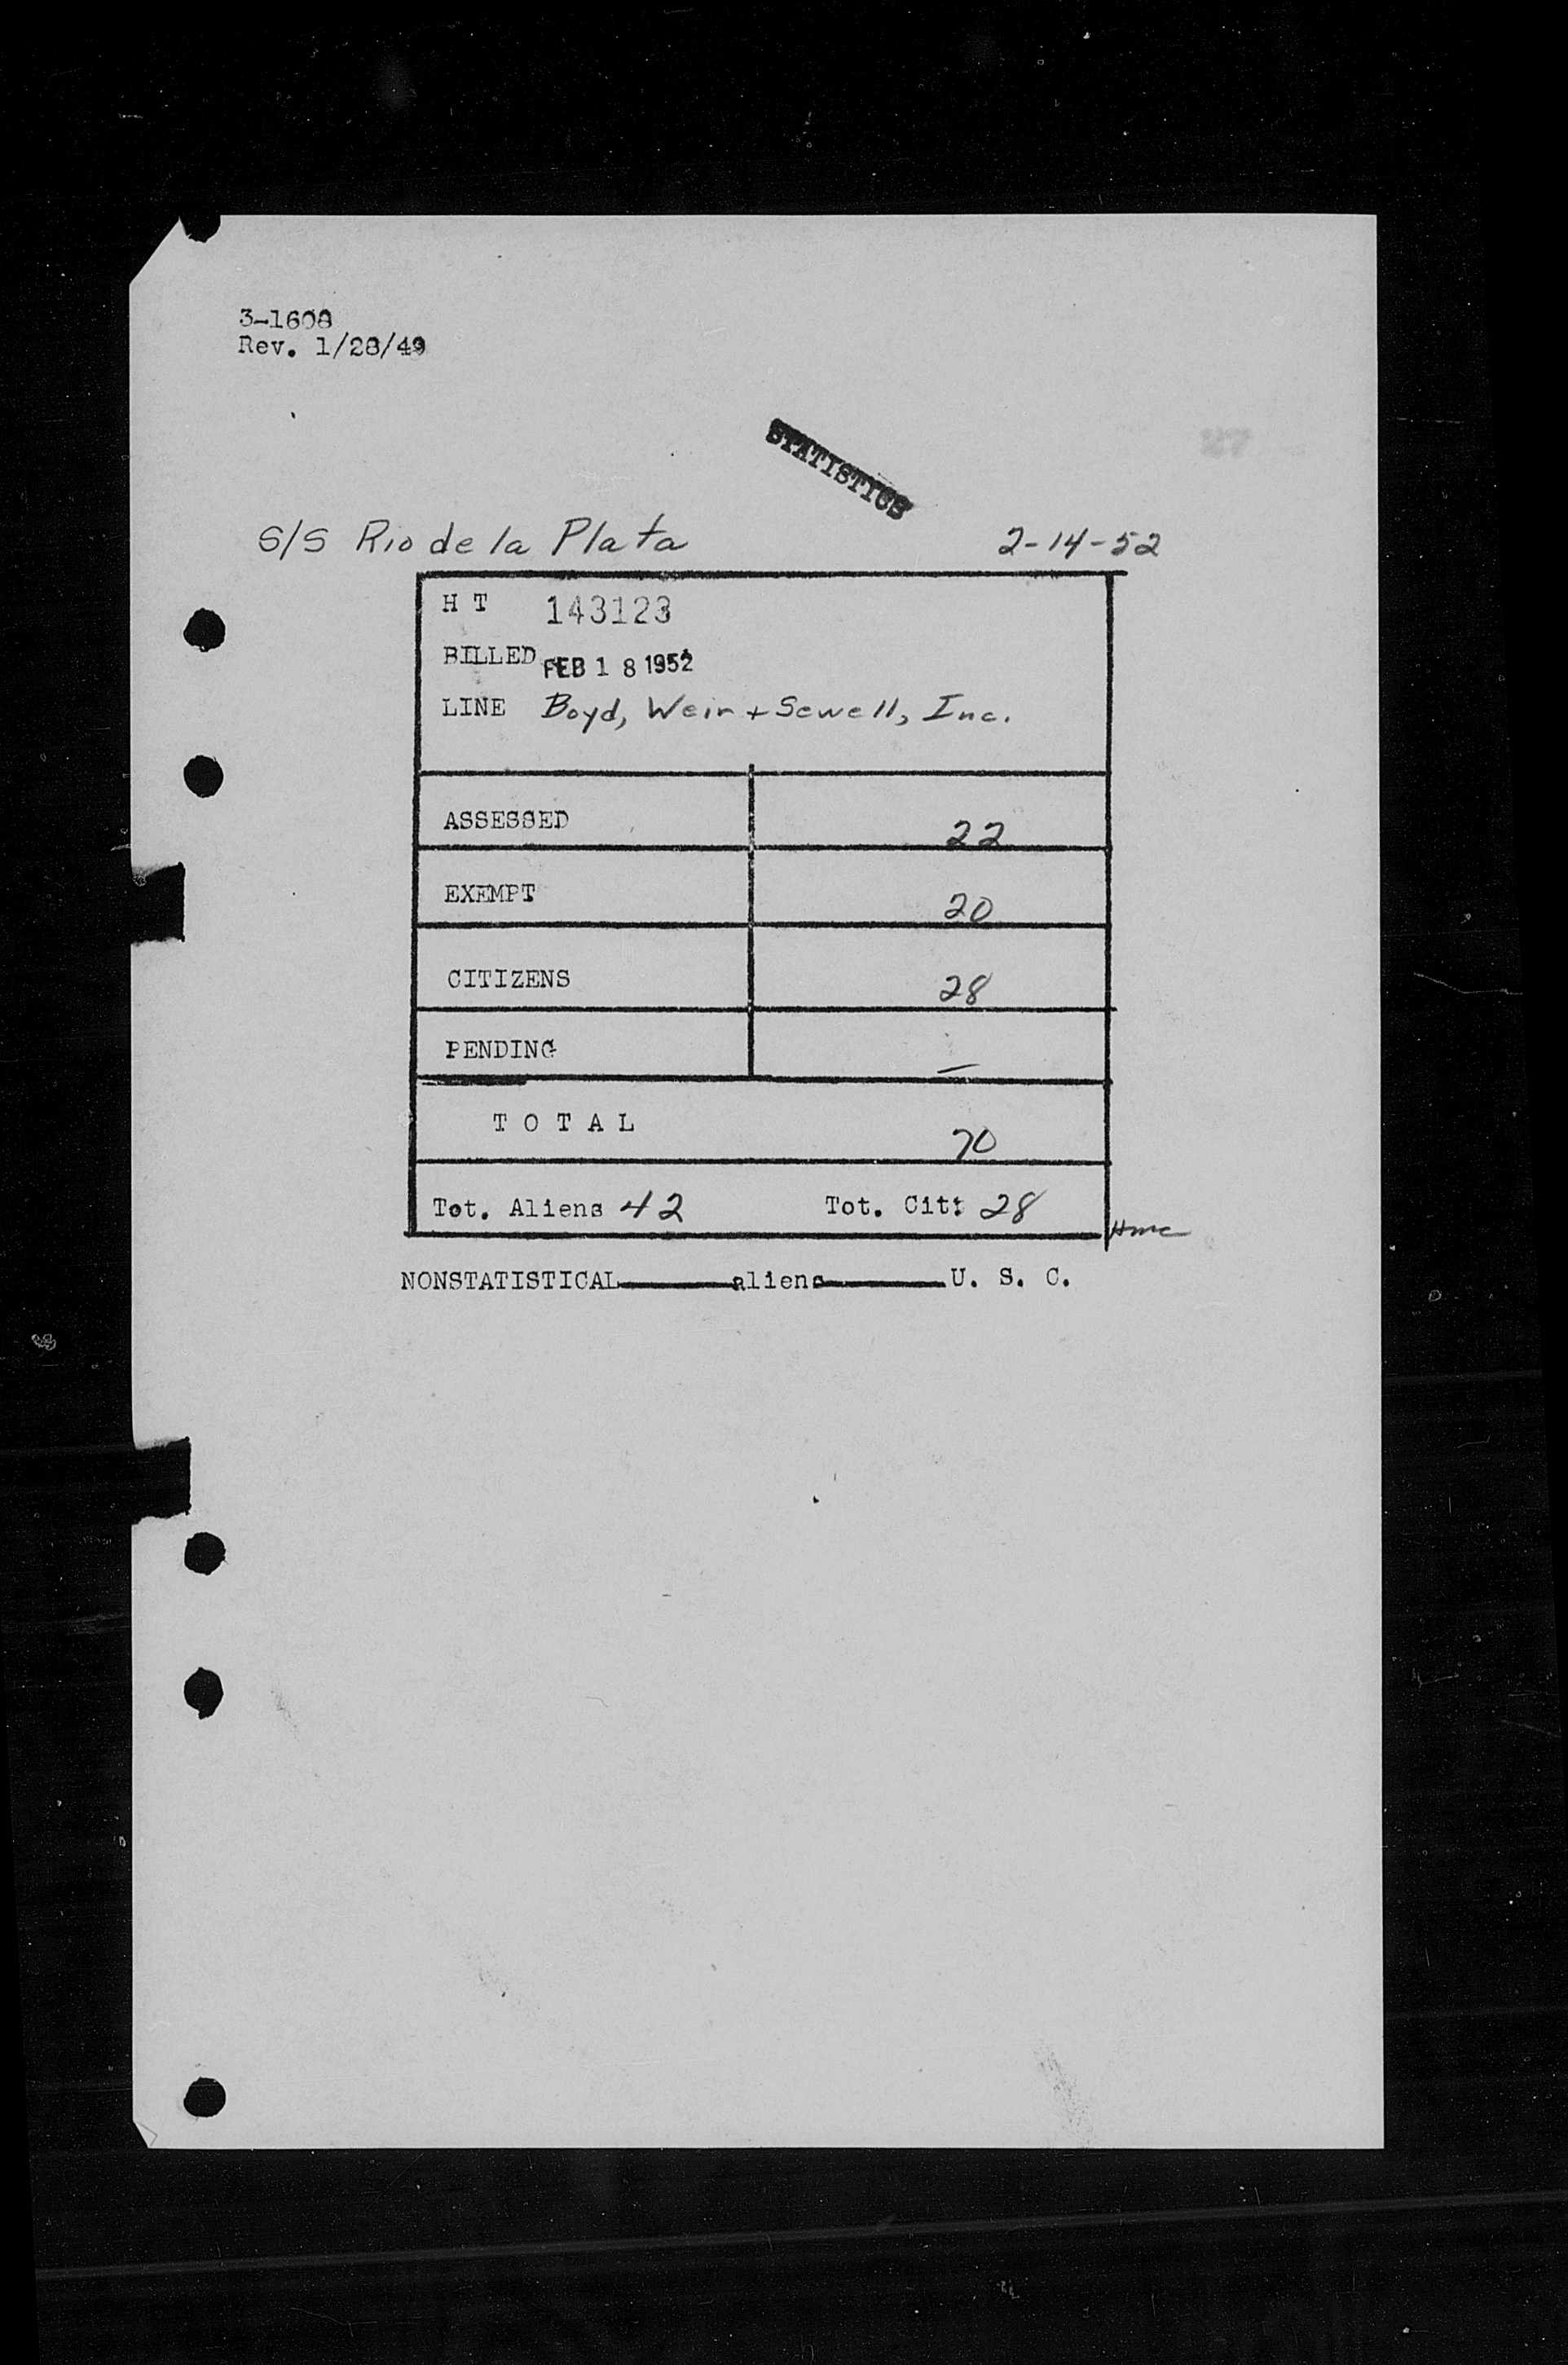 3-1608
Rev. 1/28/49
27
STATISTICS
S/S Rio de la Plata 2-14-52
H T 143123
BILLED FEB 18 1952
LINE Boyd, Weir + Sewell, Inc.
ASSESSED 22
EXEMPT 20
CITIZENS 28
PENDING —
T O T A L 70
Tot. Aliens 42 Tot. Cit: 28
NONSTATISTICAL aliens U. S. C.